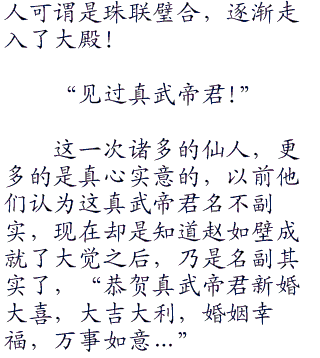 人可谓是珠联璧合，逐渐走
入了大殿！
“见过真武帝君！”
这一次诸多的仙人，更
多的是真心实意的，以前他
们认为这真武帝君名不副
实，现在却是知道赵如壁成
就了大觉之后，乃是名副其
实了，“恭贺真武帝君新婚
大喜，大吉大利，婚姻幸
福，万事如意…”